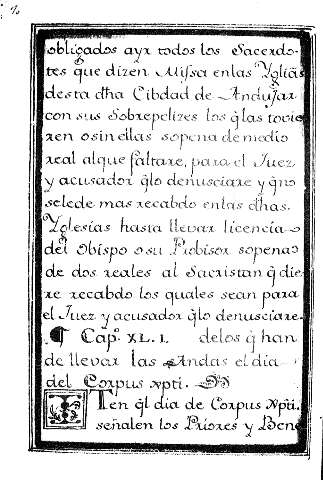 obligados ayr todos los Sacerdo-
tes que dizen Missa enlas Yglias
desta dha Cibdad de Andujar
con sus Sobrepelizes los q̃ las tovie
ren o sin ellas sopena de medio
real al que faltare, para el Juez
y acusador q̃ lo denusciare y q̃ no
se le de mas recabdo en las dhas.
Yglesias hasta llevar licencia
del Obispo o su Probisor so pena
de dos reales al Sacristan q̃ die
re recabdo los quales sean para
el Juez y acusador q̃ lo denusciare.
¶ Capº. XL.I. de los q̃ han
de llevar las Andas el dia
del Corpus xpti.
ITen q̃l dia de Corpus Xpti.
señalen los Priores y Bene